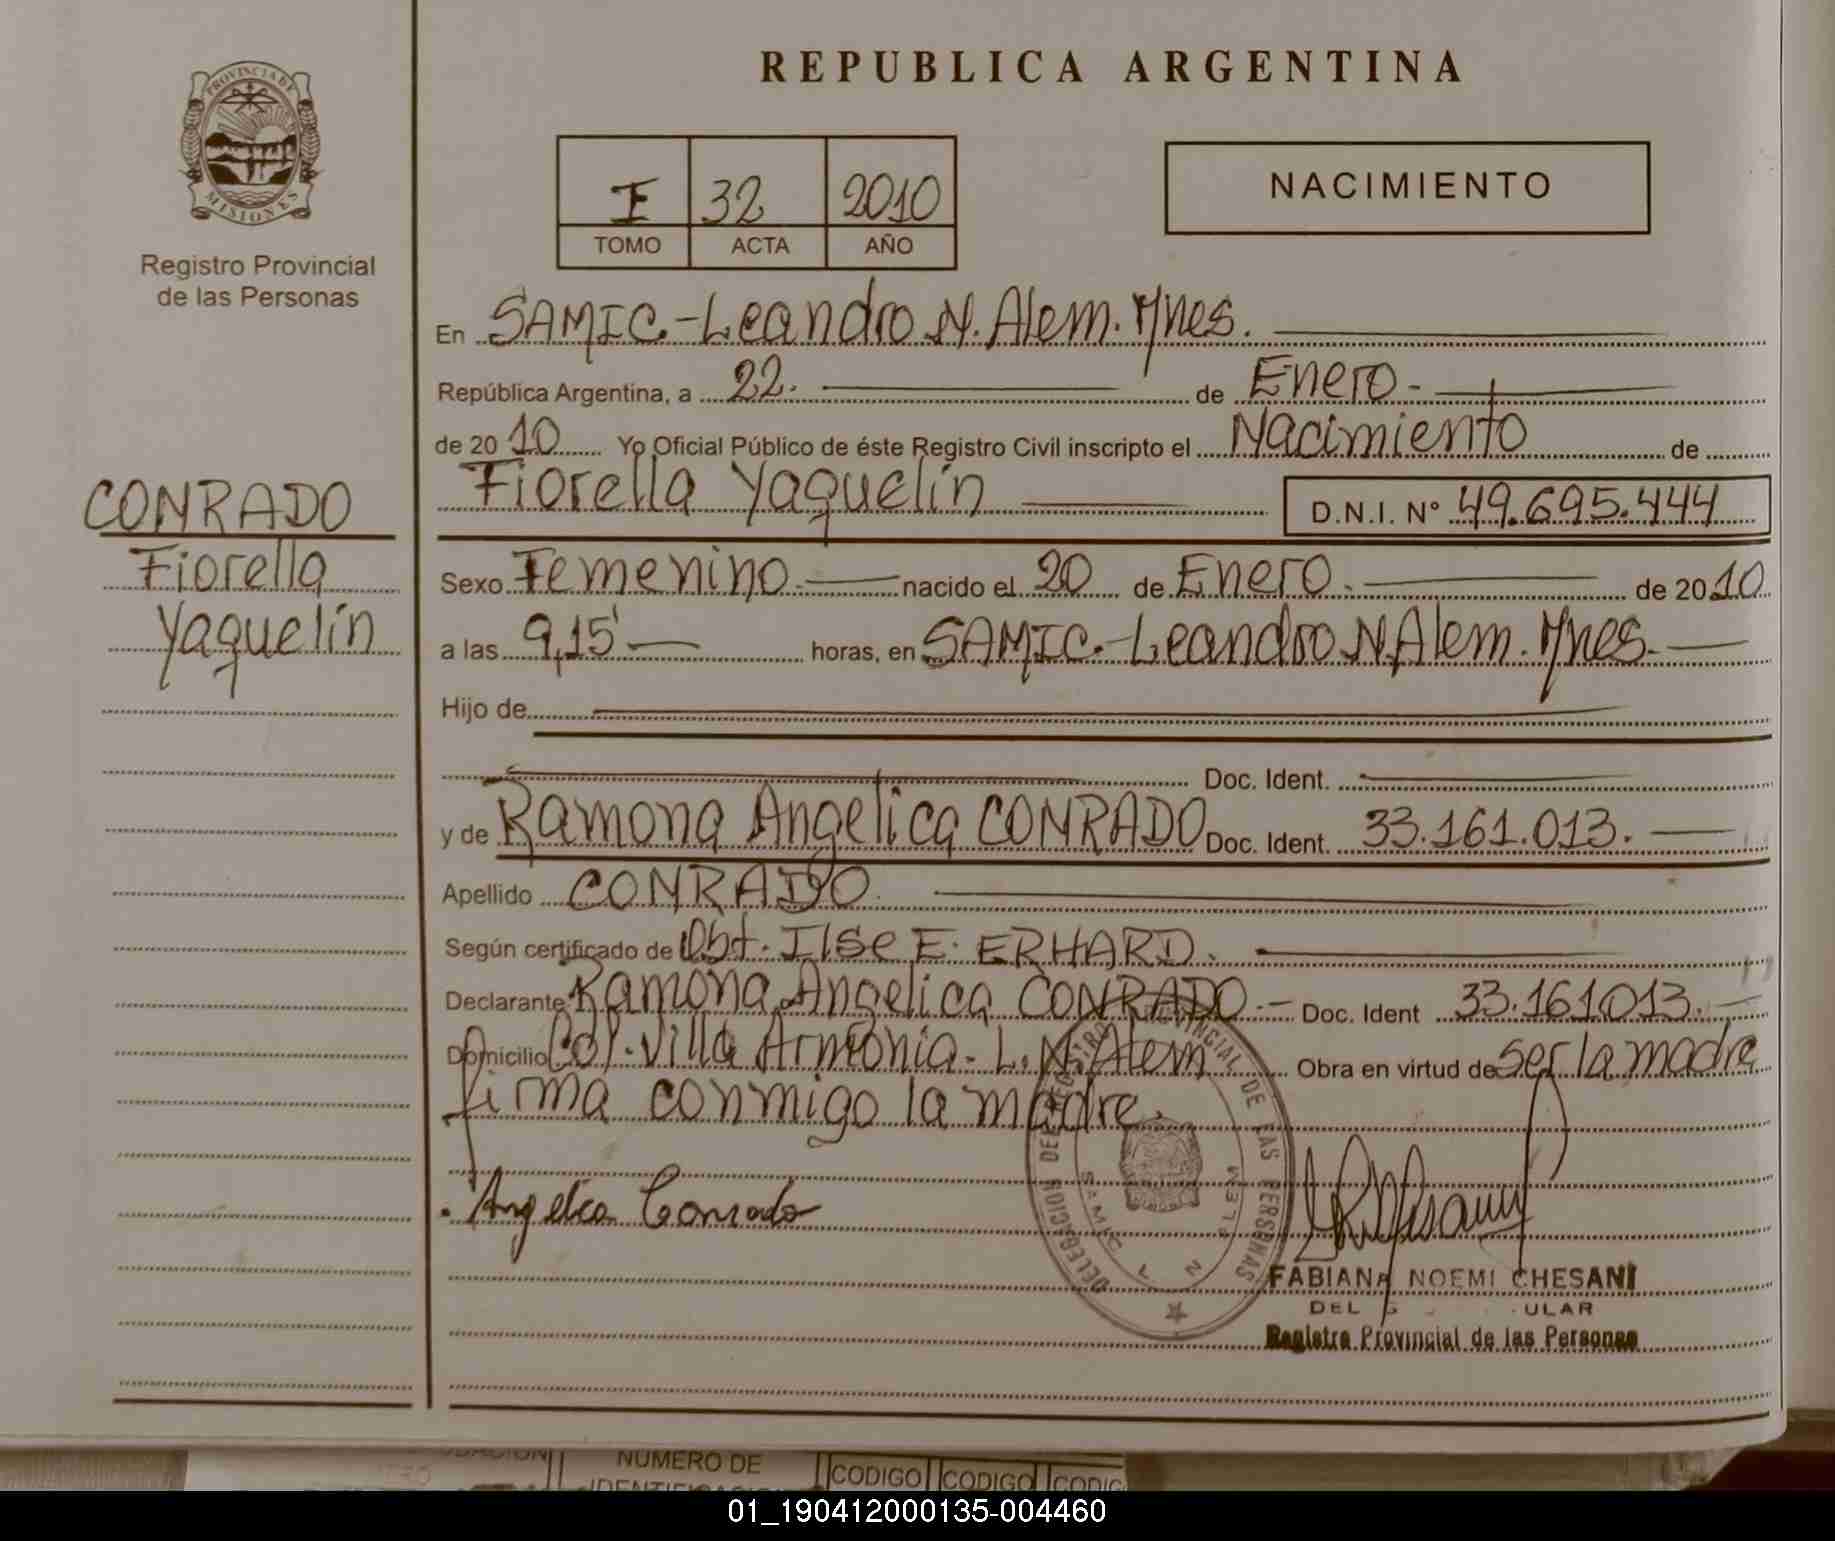 REPUBLICA ARGENTINA
PROVINCIA DE
MISIONES
Registro Provincial
de las Personas
I 32 2010
TOMO ACTA AÑO
NACIMIENTO
En SAMIC.-Leandro N. Alem. Mnes.
República Argentina, a 22. de Enero.
de 20 10 Yo Oficial Público de éste Registro Civil inscripto el Nacimiento de
Fiorella Yaquelín D.N.I. N° 49.695.444
CONRADO
Fiorella
Yaquelín
Sexo Femenino. nacido el 20 de Enero. de 20 10
a las 9,15' horas, en SAMIC.-Leandro N. Alem. Mnes.
Hijo de
Doc. Ident.
y de Ramona Angelica CONRADO Doc. Ident. 33.161.013.
Apellido CONRADO.
Según certificado de Obst. Ilse E. ERHARD.
Declarante Ramona Angelica CONRADO.- Doc. Ident 33.161.013.
Domicilio Col. Villa Armonia. L. N. Alem Obra en virtud de ser la madre
firma conmigo la madre.
Angelica Conrado
DELEGACION DEL REGISTRO PROVINCIAL DE LAS PERSONAS
SAMIC L N ALEM
FABIANA NOEMI CHESANI
Registro Provincial de las Personas
NUMERO DE
CODIGO CODIGO
01_190412000135-004460